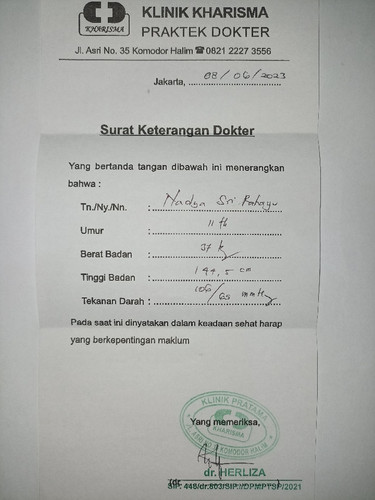 KHARISMA
KLINIK KHARISMA
PRAKTEK DOKTER
Jl. Asri No. 35 Komodor Halim ☎ 0821 2227 3556
Jakarta, 08/06/2023
Surat Keterangan Dokter
Yang bertanda tangan dibawah ini menerangkan
bahwa :
Tn./Ny./Nn. : Nadya Sri Rahayu
Umur : 11 th
Berat Badan : 37 kg
Tinggi Badan : 144,5 cm
Tekanan Darah : 106/65 mmHg
Pada saat ini dinyatakan dalam keadaan sehat harap
yang berkepentingan maklum
KLINIK PRATAMA
KHARISMA
Yang memeriksa,
KOMODOR HALIM
dr. HERLIZA